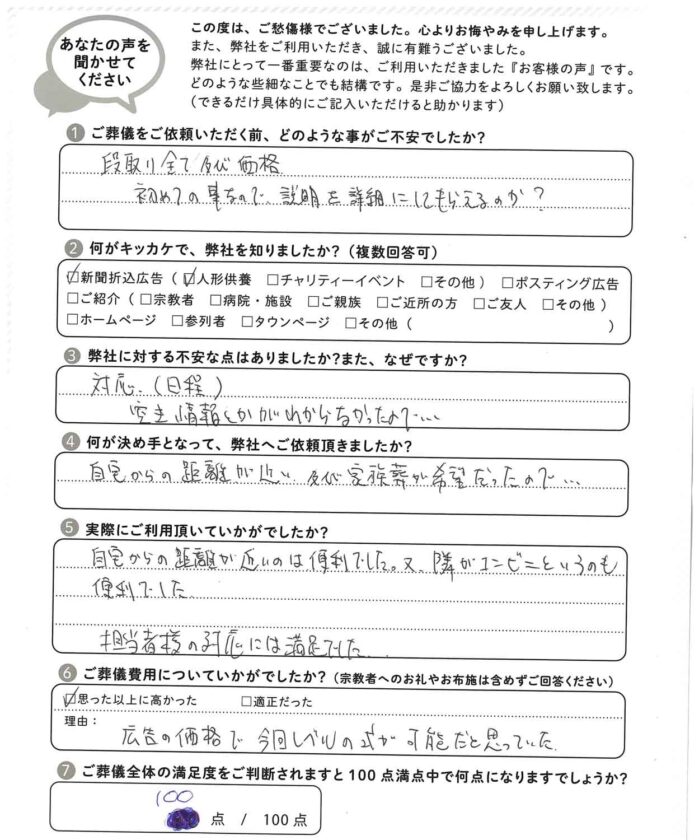 あなたの声を
聞かせて
ください
この度は、ご愁傷様でございました。心よりお悔やみを申し上げます。
また、弊社をご利用いただき、誠に有難うございました。
弊社にとって一番重要なのは、ご利用いただきました『お客様の声』です。
どのような些細なことでも結構です。是非ご協力をよろしくお願い致します。
(できるだけ具体的にご記入いただけると助かります)
1 ご葬儀をご依頼いただく前、どのような事がご不安でしたか?
段取り全て及び価格
初めての事なので、説明を詳細にしてもらえるのか?
2 何がキッカケで、弊社を知りましたか?(複数回答可)
☑新聞折込広告(☑人形供養 □チャリティーイベント □その他) □ポスティング広告
□ご紹介(□宗教者 □病院・施設 □ご親族 □ご近所の方 □ご友人 □その他)
□ホームページ □参列者 □タウンページ □その他( )
3 弊社に対する不安な点はありましたか?また、なぜですか?
対応、(日程)
空き情報とかがわからなかったので…
4 何が決め手となって、弊社へご依頼頂きましたか?
自宅からの距離が近い、及び家族葬が希望だったので…
5 実際にご利用頂いていかがでしたか?
自宅からの距離が近いのは便利でした。又、隣がコンビニというのも
便利でした
担当者様の対応には満足でした
6 ご葬儀費用についていかがでしたか?(宗教者へのお礼やお布施は含めずご回答ください)
☑思った以上に高かった □適正だった
理由:
広告の価格で今回レベルの式が可能だと思っていた
7 ご葬儀全体の満足度をご判断されますと100点満点中で何点になりますでしょうか?
100
点 / 100点